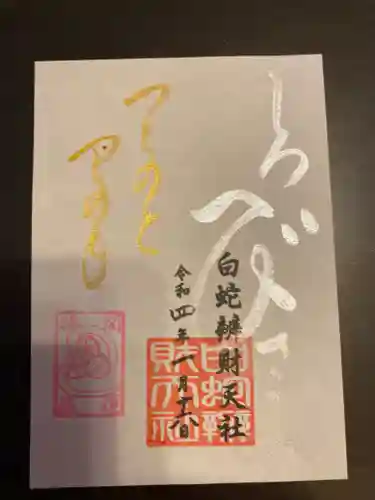 しろ
へび
白蛇辨財天社
令和四年一月十六日
つちのと
白蛇辨
財天社